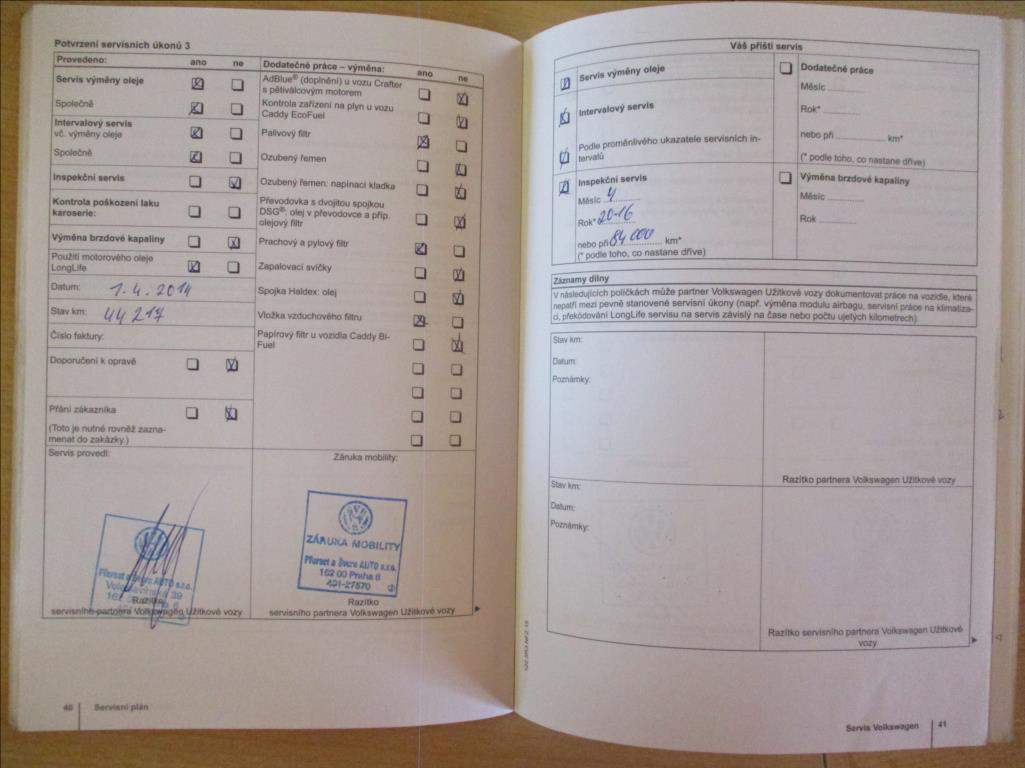 Potvrzení servisních úkonů 3
Provedeno: ano ne
Servis výměny oleje
Společně
Intervalový servis
vč. výměny oleje
Společně
Inspekční servis
Kontrola poškození laku
karoserie:
Výměna brzdové kapaliny
Použití motorového oleje
LongLife
Datum: 1.4.2014
Stav km: 44217
Číslo faktury:
Doporučení k opravě
Přání zákazníka
(Toto je nutné rovněž zazna-
menat do zakázky.)
Servis provedl:
Dodatečné práce – výměna: ano ne
AdBlue® (doplnění) u vozu Crafter
s pětiválcovým motorem
Kontrola zařízení na plyn u vozu
Caddy EcoFuel
Palivový filtr
Ozubený řemen
Ozubený řemen: napínací kladka
Převodovka s dvojitou spojkou
DSG®: olej v převodovce a příp.
olejový filtr
Prachový a pylový filtr
Zapalovací svíčky
Spojka Haldex: olej
Vložka vzduchového filtru
Papírový filtr u vozidla Caddy Bi-
Fuel
Záruka mobility:
Přerost a Švorc AUTO s.r.o.
Razítko
servisního partnera Volkswagen Užitkové vozy
ZÁRUKA MOBILITY
Přerost a Švorc AUTO s.r.o.
162 00 Praha 6
401-27570
Razítko
servisního partnera Volkswagen Užitkové vozy
40 Servisní plán
Váš příští servis
Servis výměny oleje
Intervalový servis
Podle proměnlivého ukazatele servisních in-
tervalů
Inspekční servis
Měsíc 4
Rok* 2016
nebo při 84 000 km*
(* podle toho, co nastane dříve)
Dodatečné práce
Měsíc
Rok*
nebo při km*
(* podle toho, co nastane dříve)
Výměna brzdové kapaliny
Měsíc
Rok
Záznamy dílny
V následujících políčkách může partner Volkswagen Užitkové vozy dokumentovat práce na vozidle, které
nepatří mezi pevně stanovené servisní úkony (např. výměna modulu airbagu, servisní práce na klimatiza-
ci, překódování LongLife servisu na servis závislý na čase nebo počtu ujetých kilometrech).
Stav km:
Datum:
Poznámky:
Razítko partnera Volkswagen Užitkové vozy
Stav km:
Datum:
Poznámky:
Razítko servisního partnera Volkswagen Užitkové
vozy
Servis Volkswagen 41